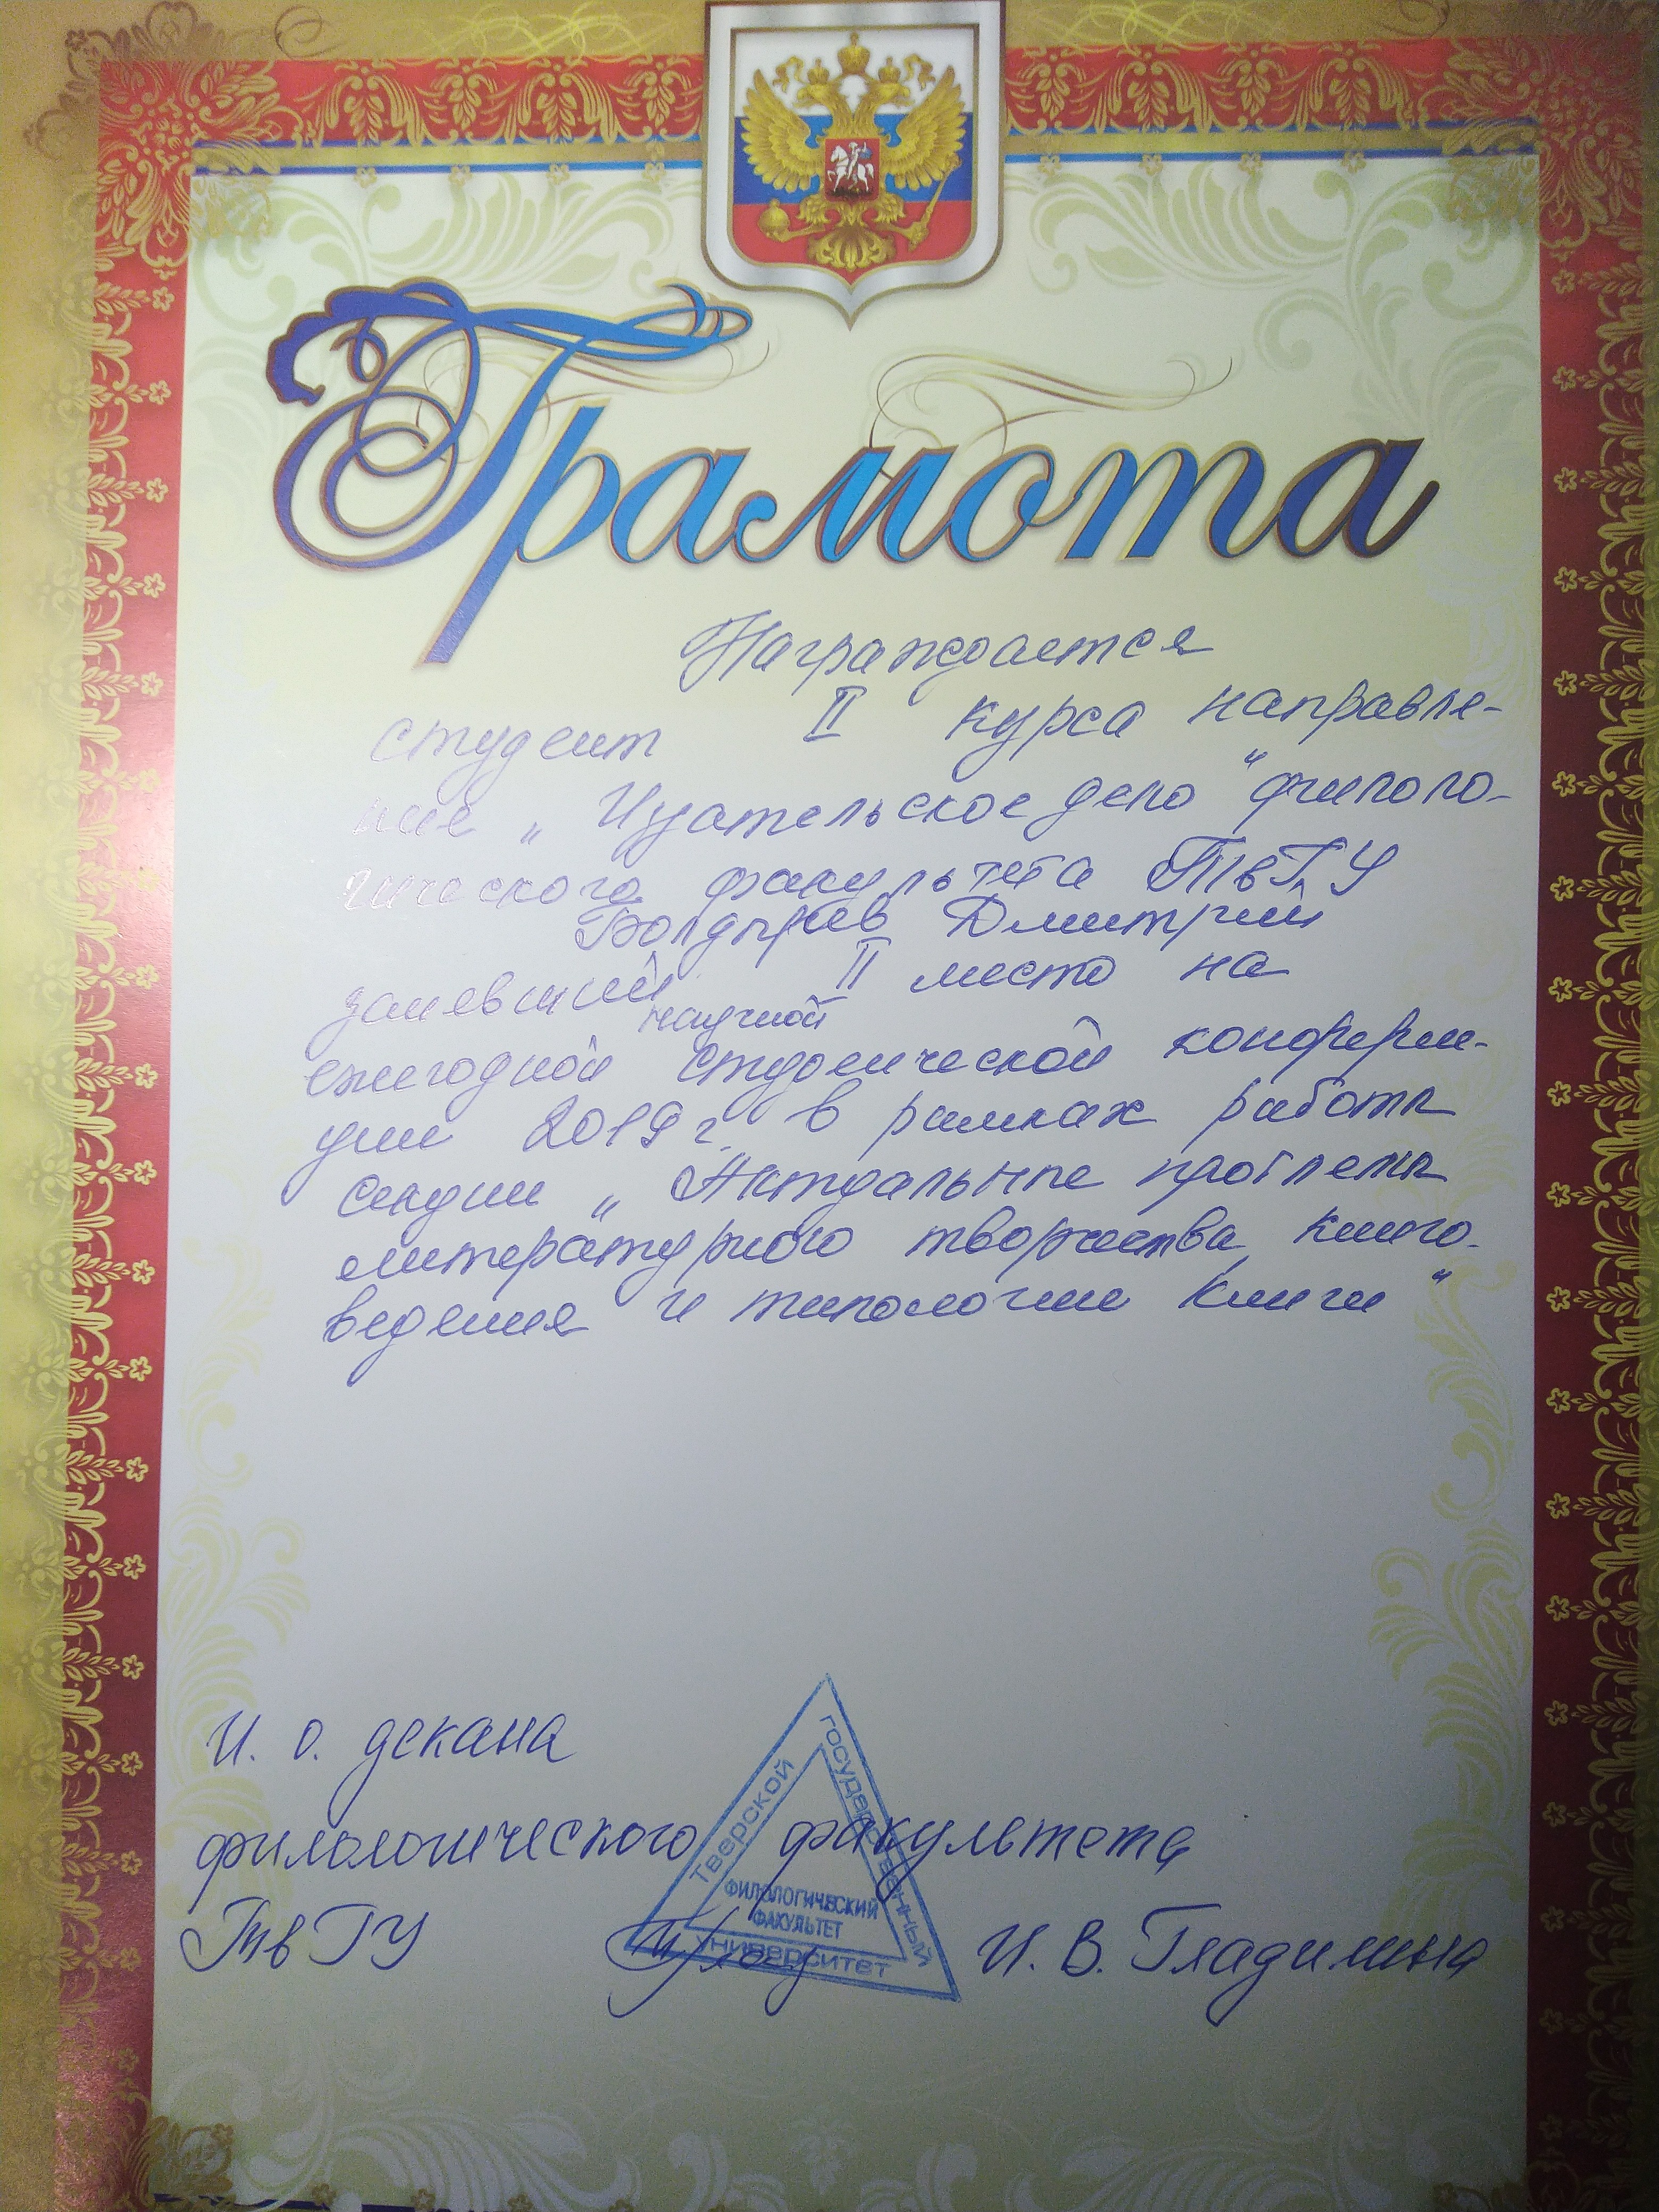 Грамота
Награждается
студент II курса направле-
ние „Издательское дело" филоло-
гического факультета ТвГУ
Болдырев Дмитрий
занявший II место на
научной
ежегодной студенческой конферен-
ции 2019 г. в рамках работы
секции „Актуальные проблемы
литературного творчества, книго-
ведения и типологии книги"
И. о. декана
филологического факультета
ТвГУ И. В. Гладилина
Тверской
государственный
университет
ФИЛОЛОГИЧЕСКИЙ
ФАКУЛЬТЕТ